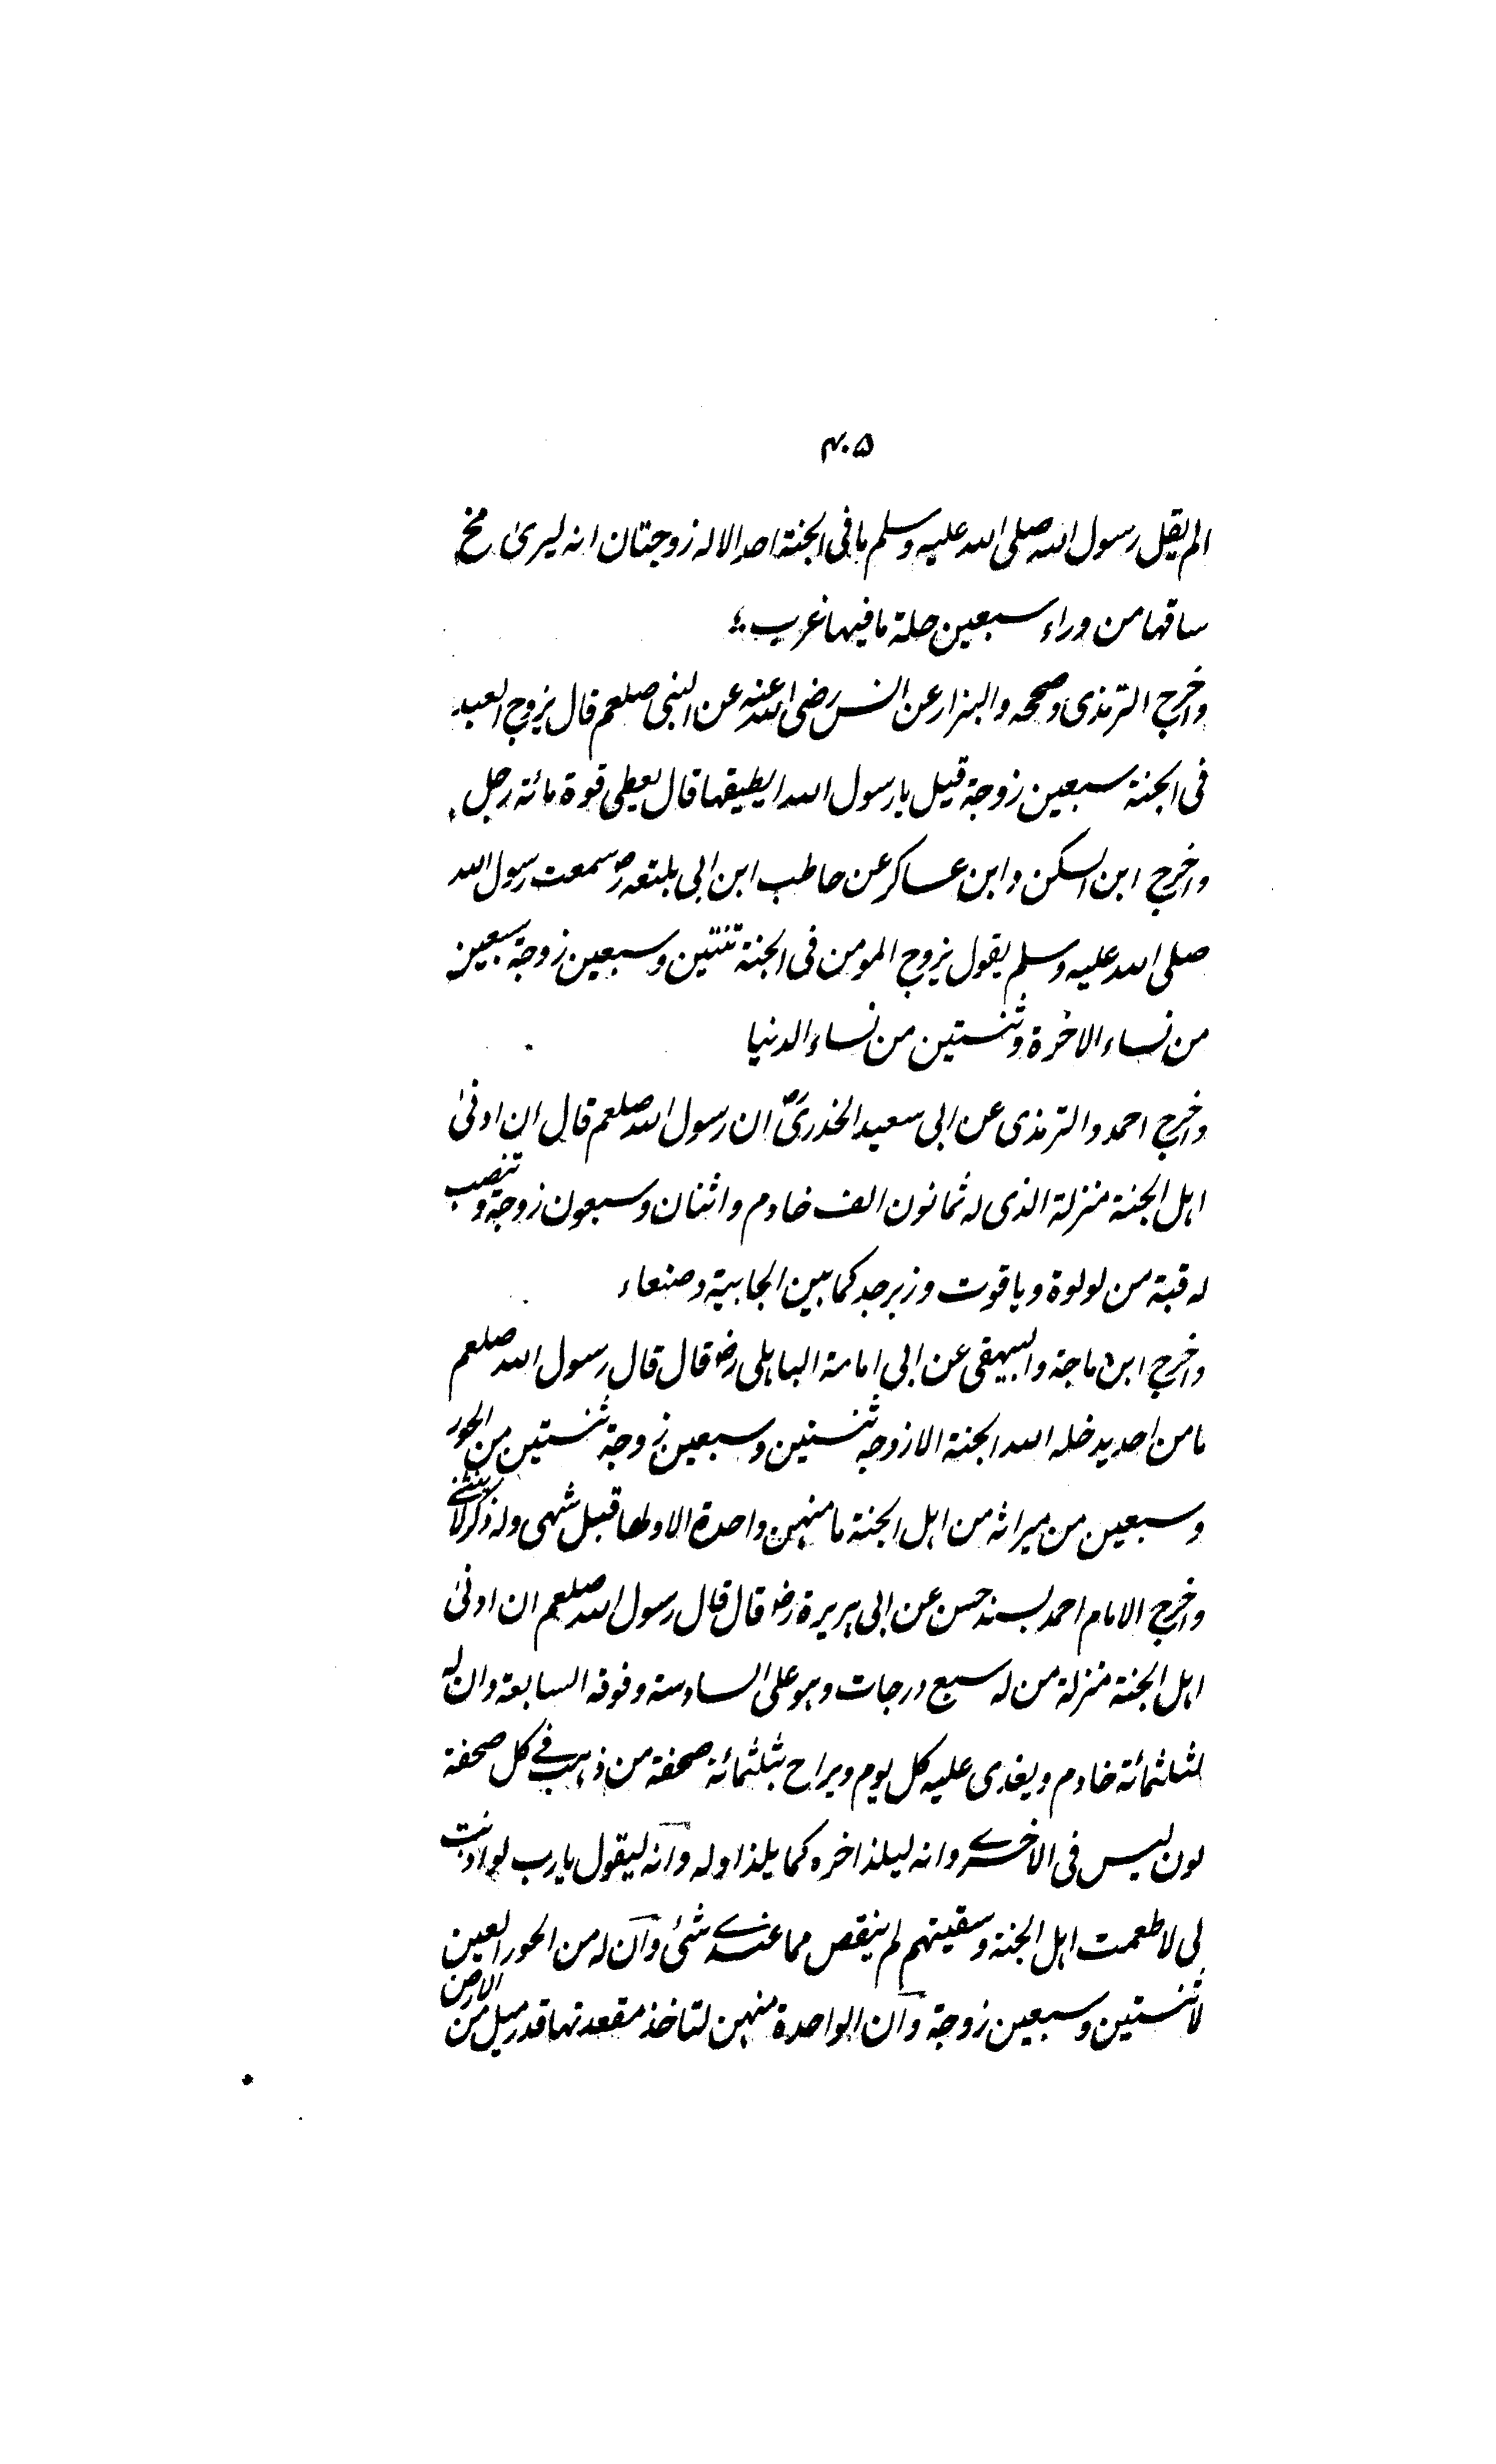 ۴۰۵
الم یقل رسول الله صلی الله علیه وسلم ما فی الجنة احد الا له زوجتان انه لیریٰ مخ
ساقها من وراء سبعین حلة ما فیها غرب
واخرج الترمذی وصححه والبزار عن انس رضی الله عنه عن النبی صلعم قال یزوج العبد
فی الجنة سبعین زوجة قیل یا رسول الله ایطیقها قال یعطی قوة مائة رجل
واخرج ابن السکن وابن عساکر عن حاطب ابن ابی بلتعه رض سمعت رسول الله
صلی الله علیه وسلم یقول یزوج المومن فی الجنة ثنتین وسبعین زوجة سبعین
من نساء الاخرة وثنتین من نساء الدنیا
واخرج احمد والترمذی عن ابی سعید الخدری رض ان رسول الله صلعم قال ان ادنیٰ
اهل الجنة منزلة الذی له ثمانون الف خادم واثنان وسبعون زوجة وتنصب
له قبة من لولوة ویاقوت وزبرجد کما بین الجابیة وصنعاء
واخرج ابن ماجة والبیهقی عن ابی امامة الباهلی رض قال قال رسول الله صلعم
ما من احد یدخله الله الجنة الا زوجه ثنتین وسبعین زوجة ثنتین من الحور
وسبعین من میراثه من اهل الجنة ما منهن واحدة الا ولها قبل شهی وله ذکر لا ینثنے
واخرج الامام احمد بسند حسن عن ابی هریرة رض قال قال رسول الله صلعم ان ادنیٰ
اهل الجنة منزلة من له سبع درجات وهو علی السادسة وفوقه السابعة وان له
لثلثمائة خادم ویغدی علیه کل یوم ویراح بثلثمائة صحفة من ذهب فے کل صحفة
لون لیس فی الاخرے وانه لیلذ اخره کما یلذ اوله وانه لیقول یا رب لو اذنت
لی لاطعمت اهل الجنة وسقیتهم لم ینقص مما عندے شئ وان له من الحور العین
لاثنتین وسبعین زوجة وان الواحدة منهن لتاخذ مقعدتها قدر میل من الارض